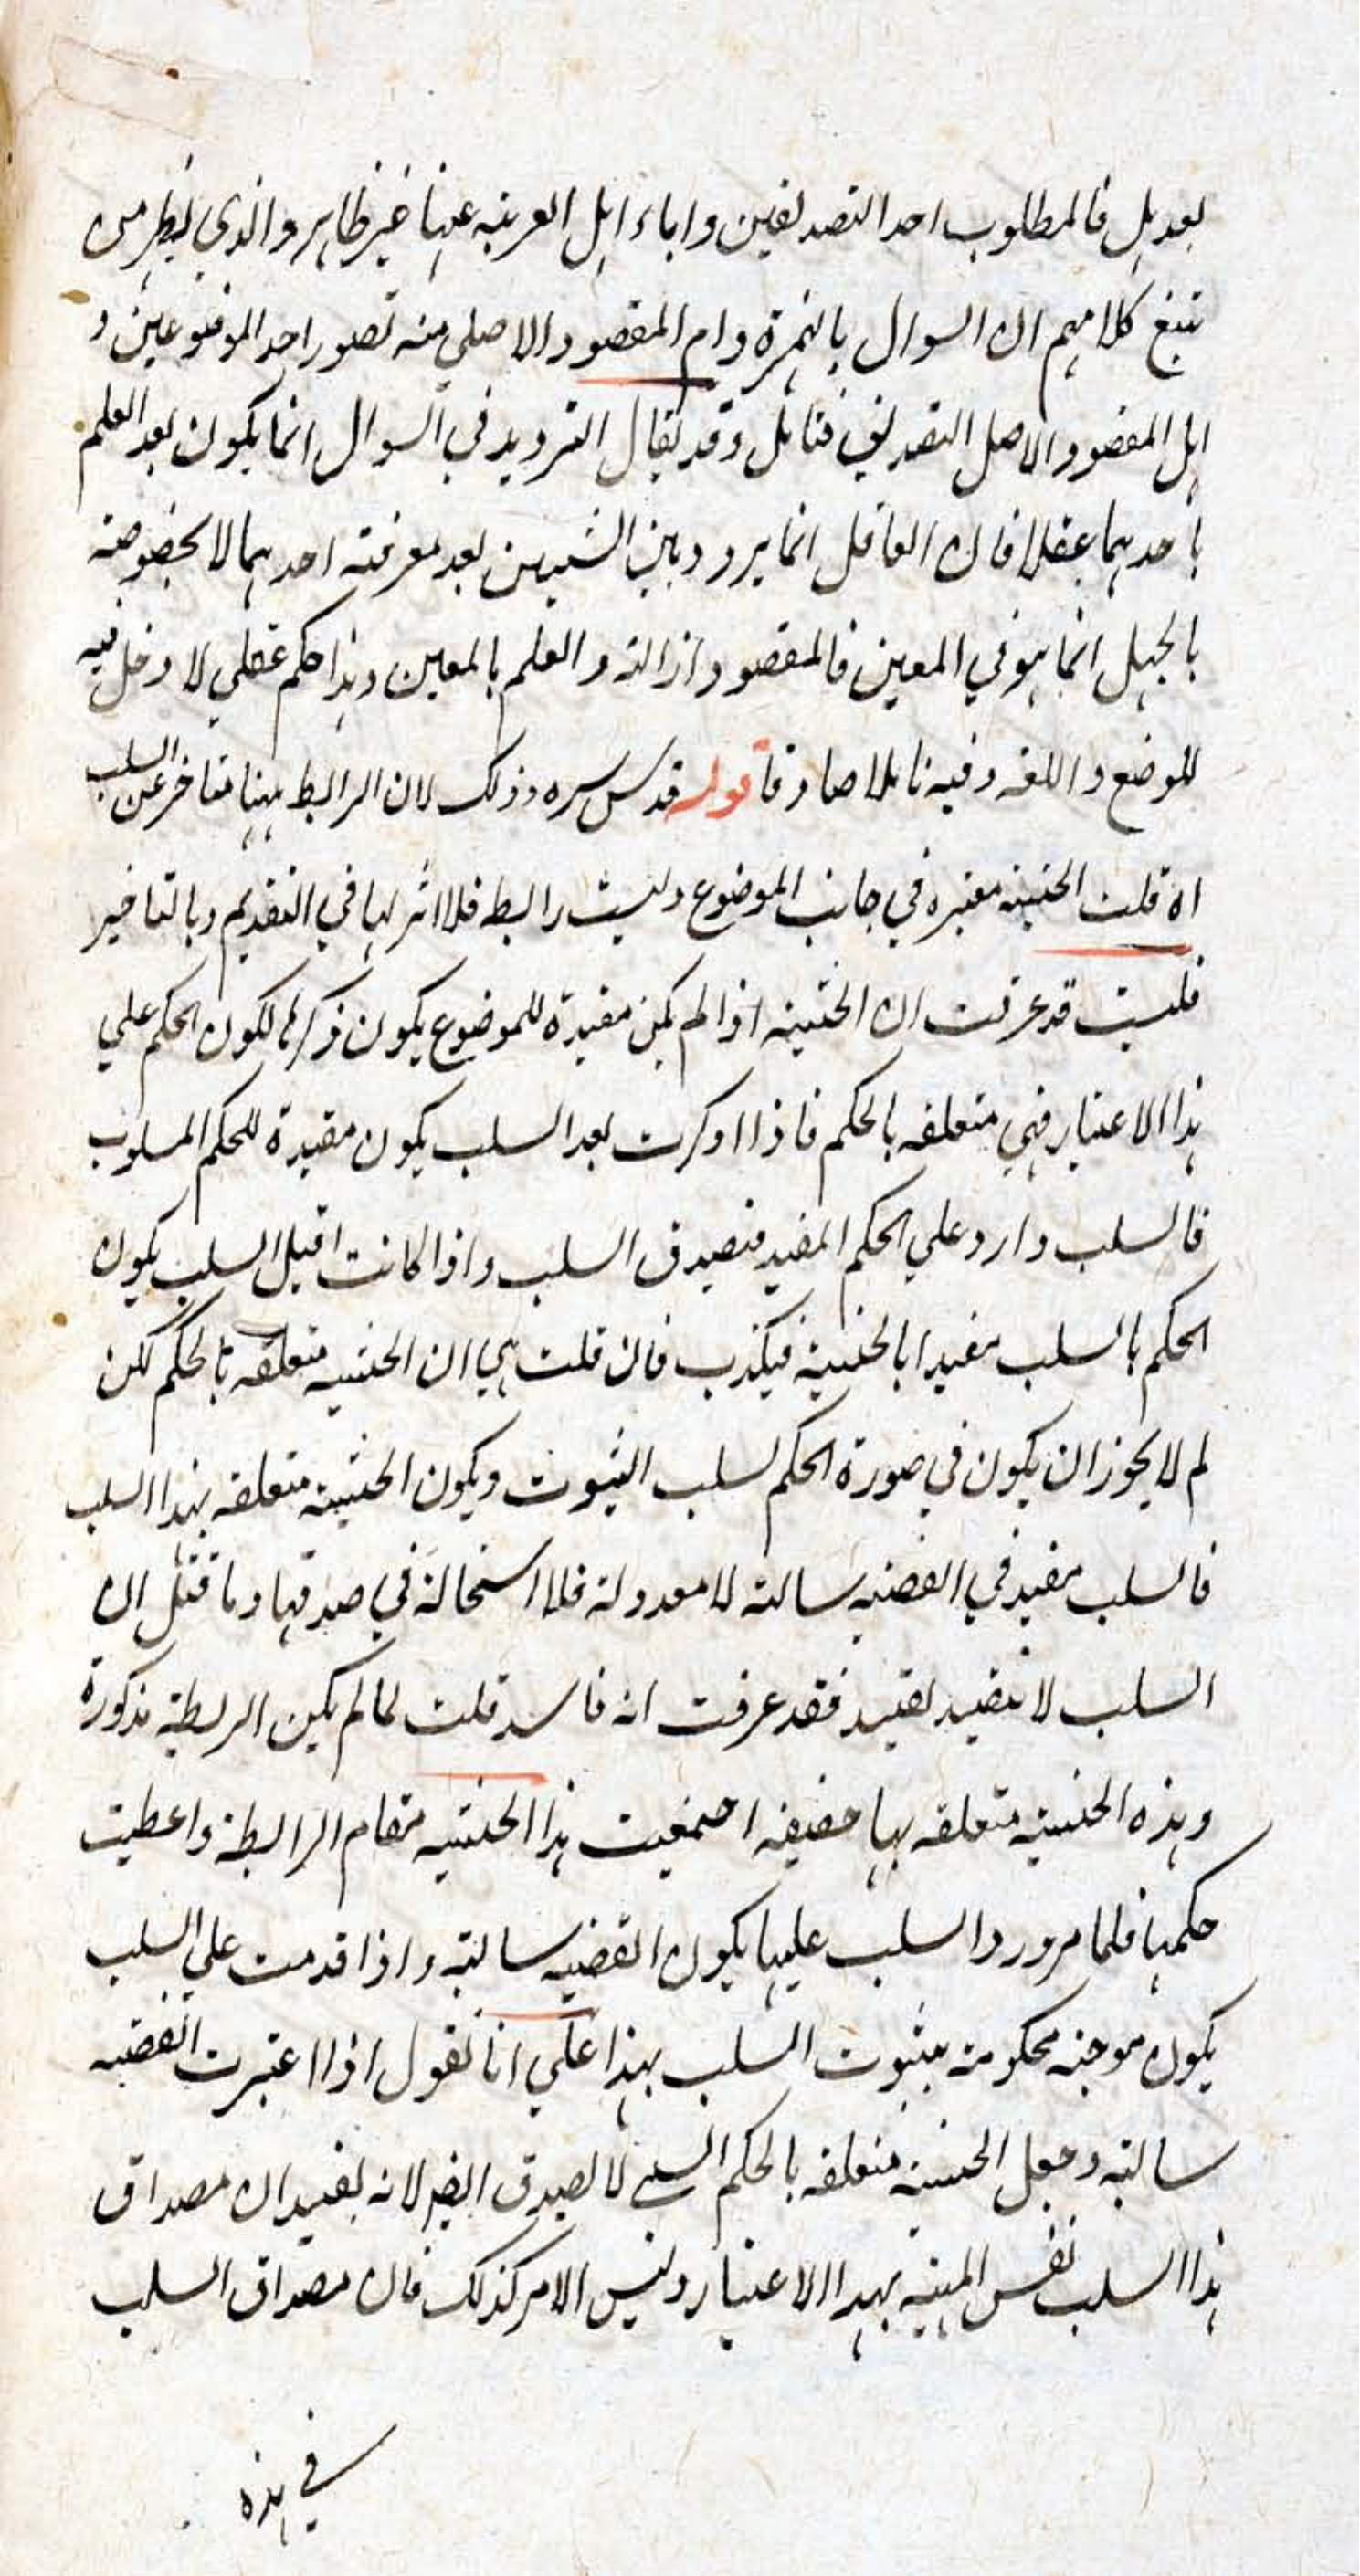 بعد هل فالمطلوب احد التصديقين واباء اهل العربية عنها غير ظاهر والذي يظهر من
تتبع كلامهم ان السوال بالهمزة وام المقصود الاصلي منه تصور احد الموضوعين و
اهل المقصود الاصل التصديق فتامل وقد يقال الترديد في السوال انما يكون بعد العلم
باحدهما عقلا فان العاقل انما يردد بين الشيئين بعد معرفته احدهما لا بخصوصه
بالجهل انما هو في المعين فالمقصود ازالته والعلم بالمعين وهذا حكم عقلي لا دخل فيه
للوضع واللغه وفيه تاملا صادقا قوله قدس سره وذلك لان الرابط ههنا متاخر عن السلب
اه قلت الحيثية معتبره في جانب الموضوع وليست رابطه فلا اثر لها في التقديم وبالتاخير
قلت قد عرفت ان الحيثية اذا لم يكن مقيدة للموضوع يكون ذكرها لكون الحكم علي
هذا الاعتبار فهي متعلقه بالحكم فاذا اذكرت بعد السلب يكون مقيدة للحكم المسلوب
فالسلب وارد علي الحكم المقيد فيصدق السلب واذا كانت قبل السلب يكون
الحكم بالسلب مقيدا بالحيثية فيكذب فان قلت هي ان الحيثيه متعلقه بالحكم لكن
لم لا يجوز ان يكون في صورة الحكم لسلب الثبوت ويكون الحيثية متعلقه بهذا السلب
فالسلب مقيد في القضيه سالبة لا معدولة فلا استحالة في صدقها وما قيل ان
السلب لا يتقيد بقيد فقد عرفت انه فاسد قلت لما لم يكن الربطة مذكورة
وهذه الحيثية متعلقه بها حقيقه اجمعيت هذا الحيثيه مقام الرابطة واعطيت
حكمها فلما مرورد السلب عليها يكون القضيه سالبة واذا قدمت علي السلب
يكون موجبه محكومة بثبوت السلب بهذا علي انا نقول اذا اعتبرت القضيه
سالبة وجعل الحيثية متعلقه بالحكم السلبي لا يصدق ايضا لانه يفيد ان مصداق
هذا السلب نفس المهية بهذا الاعتبار وليس الامر كذلك فان مصداق السلب
في هذه